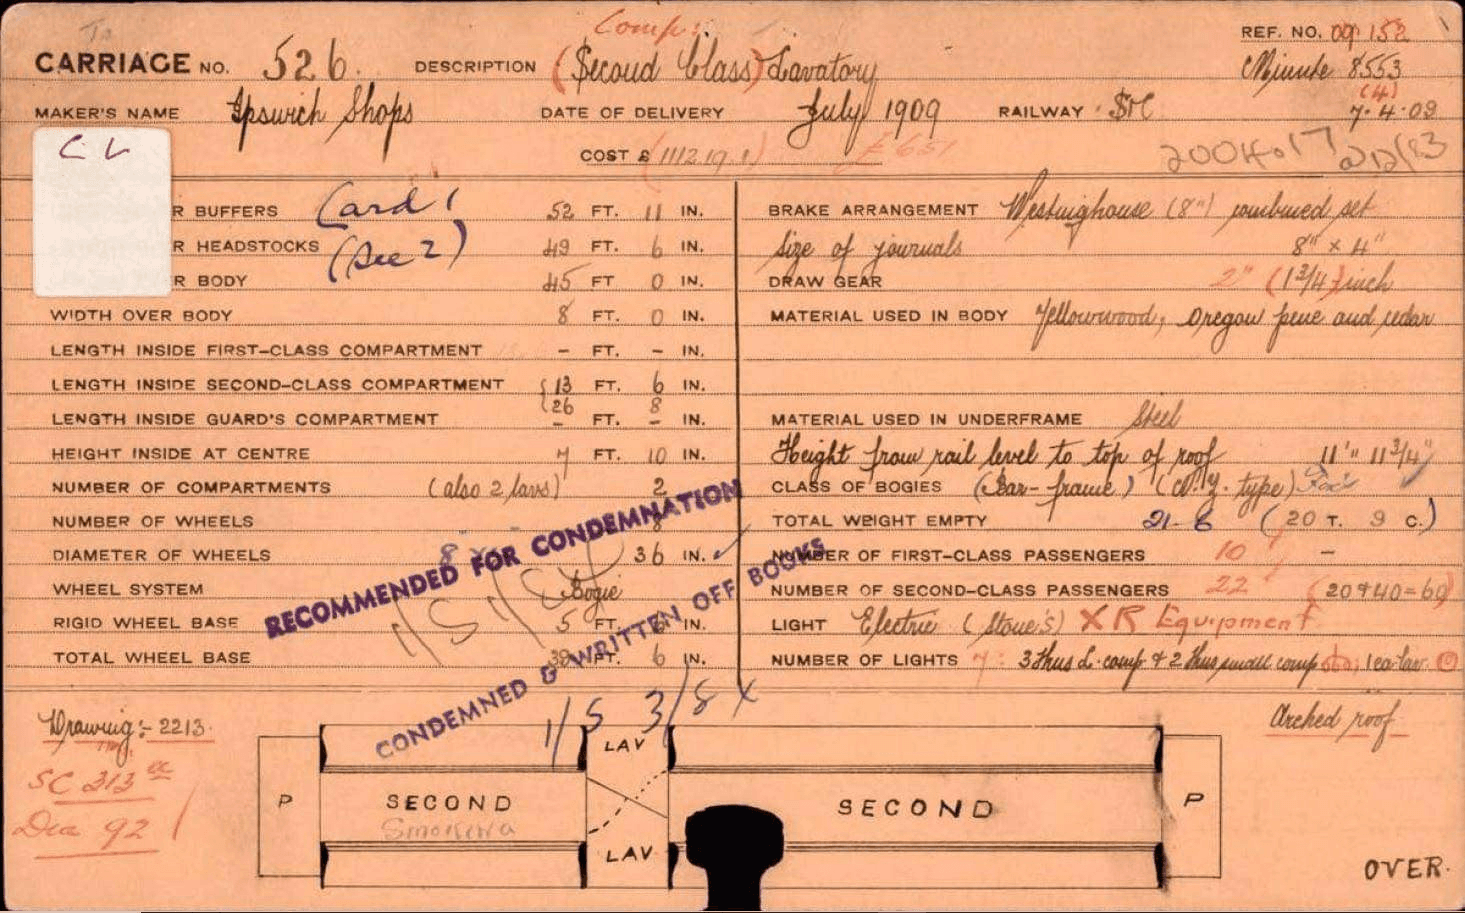 To Comp: REF. NO. 09/152
CARRIAGE NO. 526. DESCRIPTION (Second Class) Lavatory Minute 8553
(4)
MAKER'S NAME Ipswich Shops DATE OF DELIVERY July 1909 RAILWAY 7.4.09
C L COST £ (1112.19.1) £651
R BUFFERS Card 1 52 FT. 11 IN.
R HEADSTOCKS (See 2) 49 FT. 6 IN.
R BODY 45 FT 0 IN.
WIDTH OVER BODY 8 FT. 0 IN.
LENGTH INSIDE FIRST-CLASS COMPARTMENT - FT. - IN.
LENGTH INSIDE SECOND-CLASS COMPARTMENT {13 FT. 6 IN.
{26 8
LENGTH INSIDE GUARD'S COMPARTMENT - FT. - IN.
HEIGHT INSIDE AT CENTRE 7 FT. 10 IN.
NUMBER OF COMPARTMENTS (also 2 lavs) 2
NUMBER OF WHEELS 8
DIAMETER OF WHEELS 8 x 36 IN.
WHEEL SYSTEM Bogie
RIGID WHEEL BASE 5 FT. 6 IN.
TOTAL WHEEL BASE 39 FT. 6 IN.
RECOMMENDED FOR CONDEMNATION
CONDEMNED & WRITTEN OFF BOOKS
BRAKE ARRANGEMENT Westinghouse (8") combined set
Size of journals 8" x 4"
DRAW GEAR 2" (1 3/4) inch
MATERIAL USED IN BODY Yellowwood, Oregon pine and cedar
MATERIAL USED IN UNDERFRAME Steel
Height from rail level to top of roof 11' 11 3/4"
CLASS OF BOGIES (Bar-frame) (N.Z. type)
TOTAL WEIGHT EMPTY 21-6 (20 T. 9 C.)
NUMBER OF FIRST-CLASS PASSENGERS 10 -
NUMBER OF SECOND-CLASS PASSENGERS 22 (20+40=60)
LIGHT Electric (Stone's) XR Equipment
NUMBER OF LIGHTS 7: 3 thus L. comp & 2 thus small comp 1 ea lav.
Drawing:- 2213. Arched roof
SC 313
Dia 92
1/5 3/8 x
LAV
P SECOND SECOND P
Smoking
LAV
OVER.